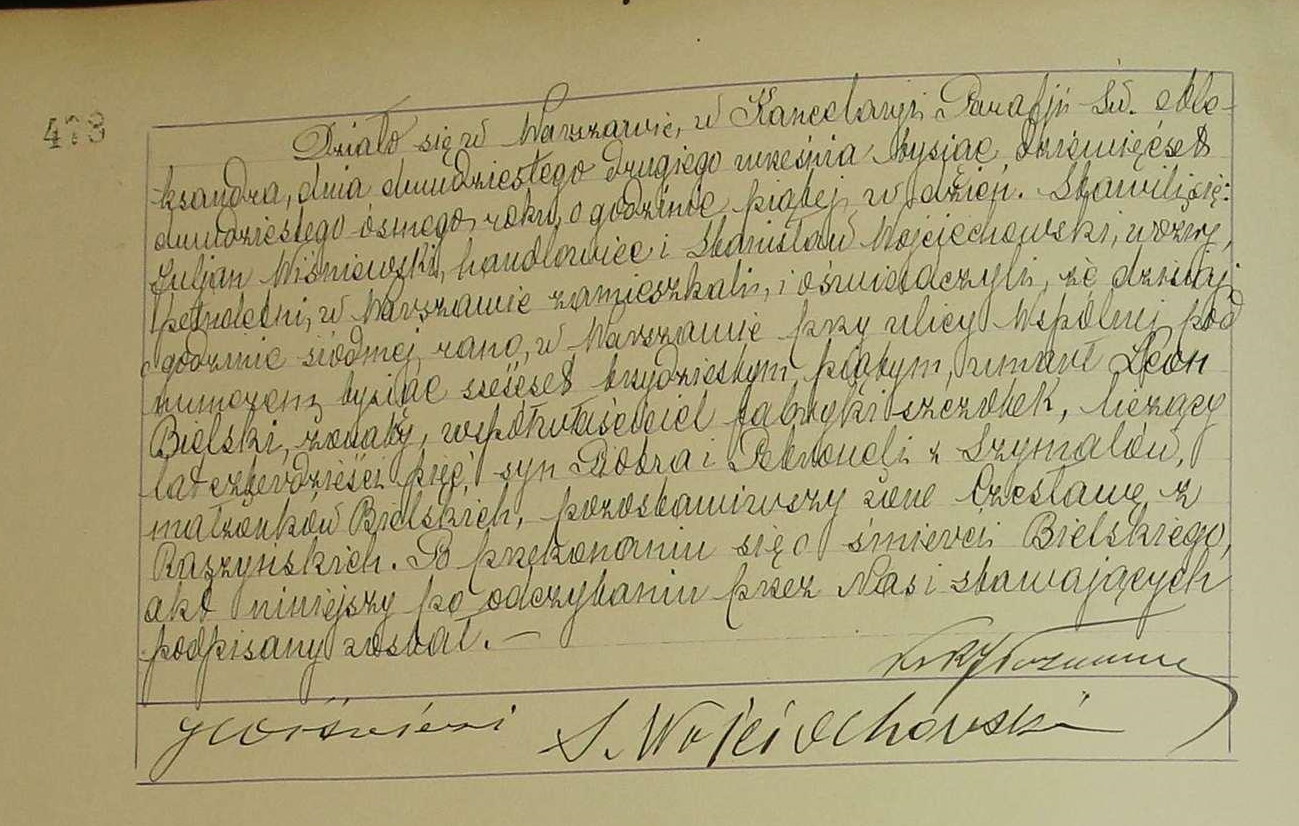 473
Działo się w Warszawie, w Kancelaryi Parafji Św. Ale-
ksandra, dnia dwudziestego drugiego września tysiąc dziewięćset
dwudziestego ósmego roku, o godzinie piątej w dzień. Stawili się:
Juljan Wiśniewski, handlowiec i Stanisław Wojciechowski, woźny,
pełnoletni, w Warszawie zamieszkali, i oświadczyli, że dzisiaj
o godzinie siódmej rano, w Warszawie przy ulicy Wspólnej pod
numerem tysiąc sześćset trzydziestym piątym, umarł Leon
Bielski, żonaty, współwłaściciel fabryki szczotek, liczący
lat czterdzieści pięć, syn Piotra i Petroneli z Szymalów,
małżonków Bielskich, pozostawiwszy żonę Czesławę z
Raszyńskich. Po przekonaniu się o śmierci Bielskiego,
akt niniejszy po odczytaniu przez Nas i stawających
podpisany został. —
J Wiśniewski S. Wojciechowski